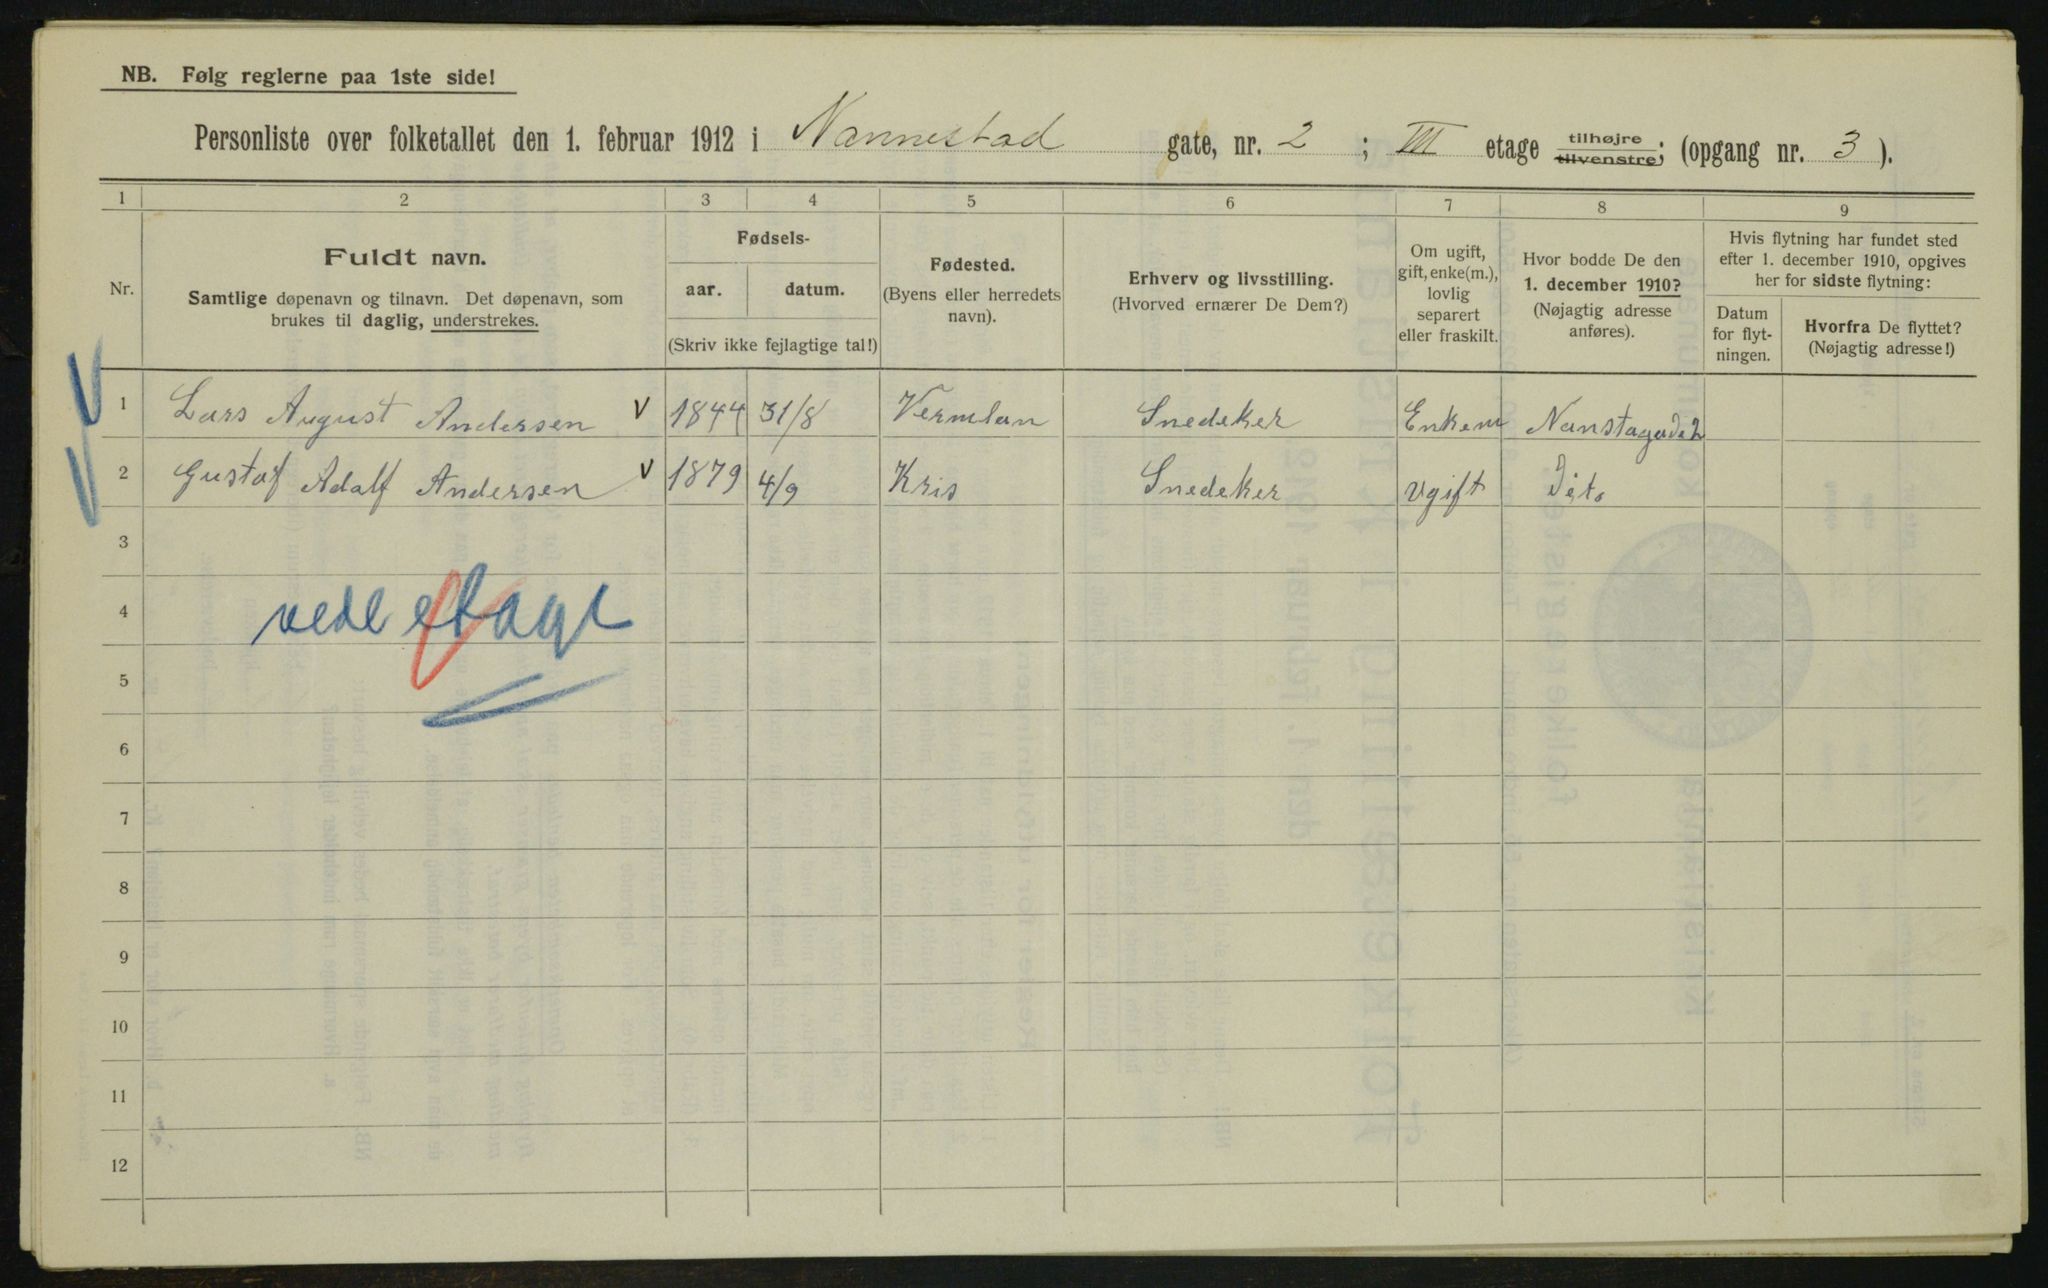 NB. Følg reglerne paa 1ste side!
Personliste over folketallet den 1. februar 1912 i Nannestad gate, nr. 2 ; III etage tilhøjre tilvenstre; (opgang nr. 3 ).
1 2 3 4 5 6 7 8 9
Nr.
Fuldt navn.
Samtlige døpenavn og tilnavn. Det døpenavn, som
brukes til daglig, understrekes.
Fødsels-
aar. datum.
(Skriv ikke fejlagtige tal!)
Fødested.
(Byens eller herredets
navn).
Erhverv og livsstilling.
(Hvorved ernærer De Dem?)
Om ugift,
gift, enke(m.),
lovlig
separert
eller fraskilt.
Hvor bodde De den
1. december 1910?
(Nøjagtig adresse
anføres).
Hvis flytning har fundet sted
efter 1. december 1910, opgives
her for sidste flytning:
Datum
for flyt-
ningen.
Hvorfra De flyttet?
(Nøjagtig adresse!)
1 Lars August Andersen V 1844 31/8 Vermlan Snedeker Enkem Nanstagade 2
2 Gustaf Adalf Andersen V 1879 4/9 Kris Snedeker Ugift Dito
3
4
5
6
7
8
9
10
11
12